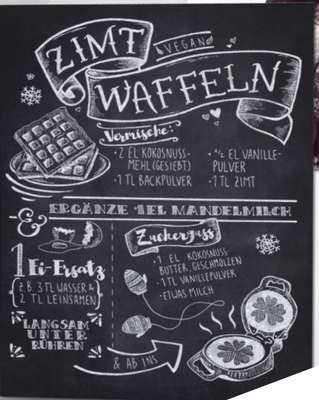 ZIMT
VEGAN
WAFFELN
Vermische:
·2 EL KOKOSNUSS-
MEHL (GESIEBT)
·1 TL BACKPULVER
·1/2 EL VANILLE-
PULVER
·1 TL ZIMT
& ERGÄNZE 1EL MANDELMILCH
1 Ei-Ersatz
(Z.B. 3 TL WASSER &
2 TL LEINSAMEN)
LANGSAM
UNTER
RÜHREN
Zuckerguss
·1 EL KOKOSNUSS-
BUTTER, GESCHMOLZEN
·1 TL VANILLEPULVER
·ETWAS MILCH
& AB INS